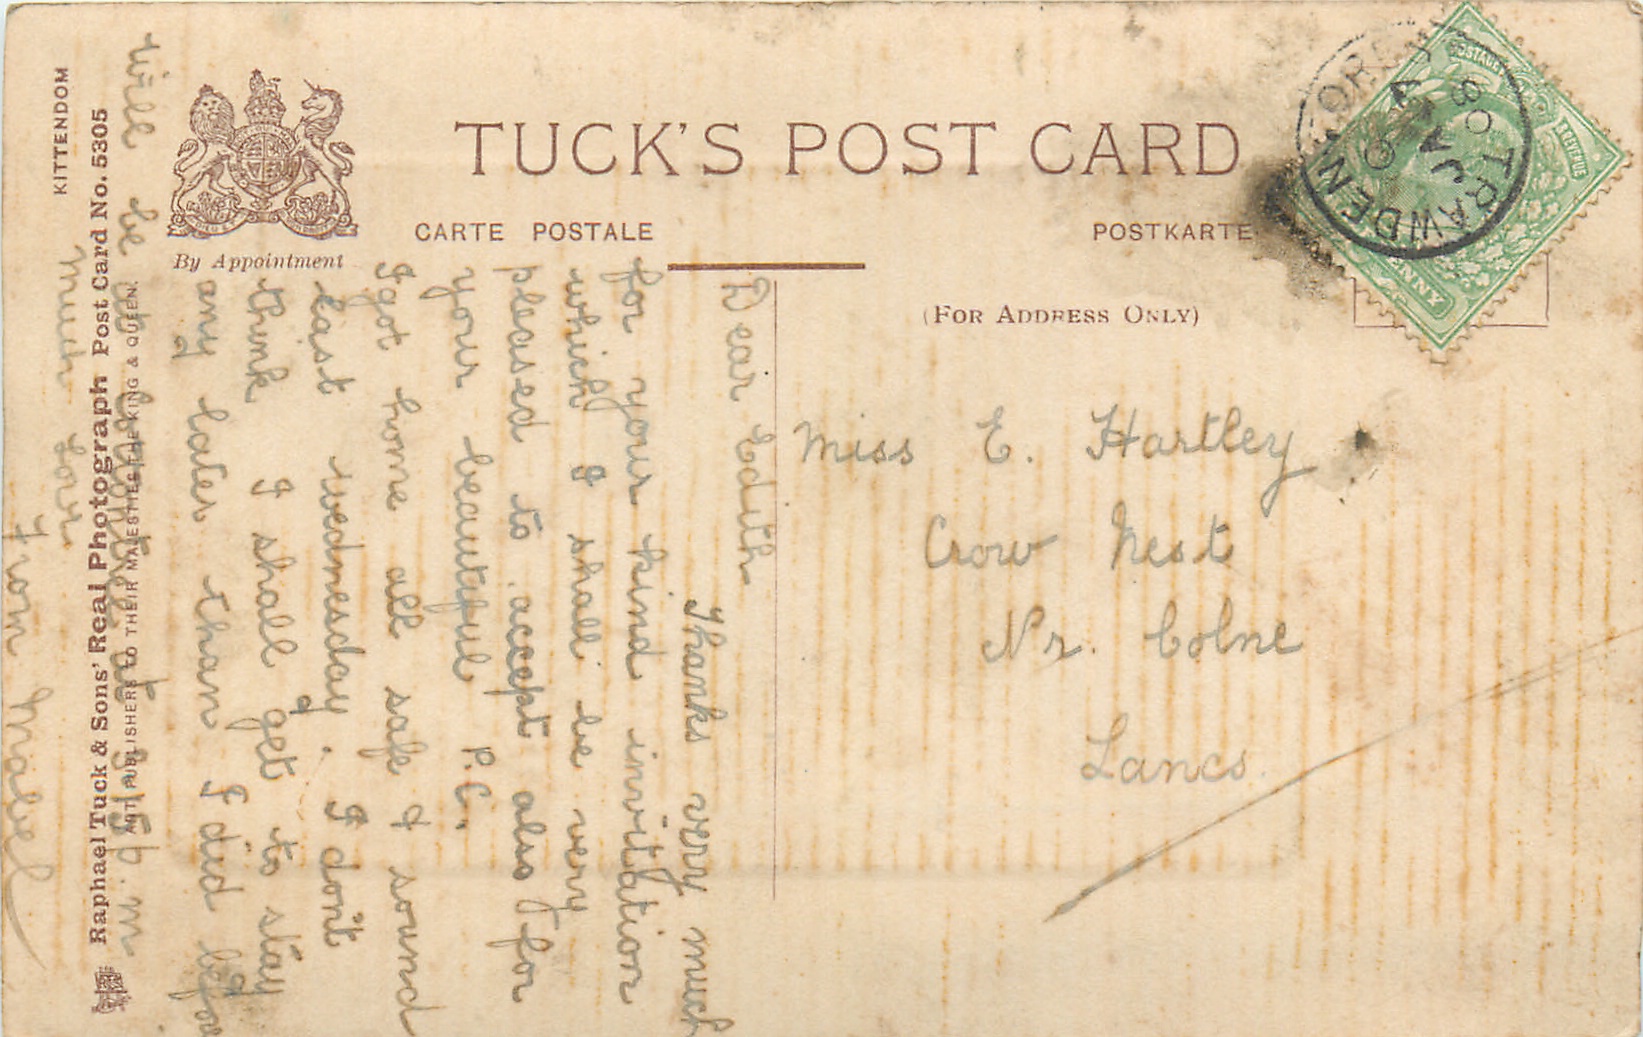 KITTENDOM
Raphael Tuck & Sons' Real Photograph Post Card No. 5305
ART PUBLISHERS TO THEIR MAJESTIES THE KING & QUEEN.
By Appointment
TUCK'S POST CARD
CARTE POSTALE
POSTKARTE
(FOR ADDRESS ONLY)
TRAWDEN
JA
9
08
POSTAGE
REVENUE
Miss E. Hartley
Crow Nest
Nr. Colne
Lancs.
Dear Edith
Thanks very much
for your kind invitation
which I shall be very
pleased to accept also for
your beautiful P.C.
I got home all safe & sound
last wednesday. I don't
think I shall get to stay
any later than I did before
will be at at
much love
from Mabel